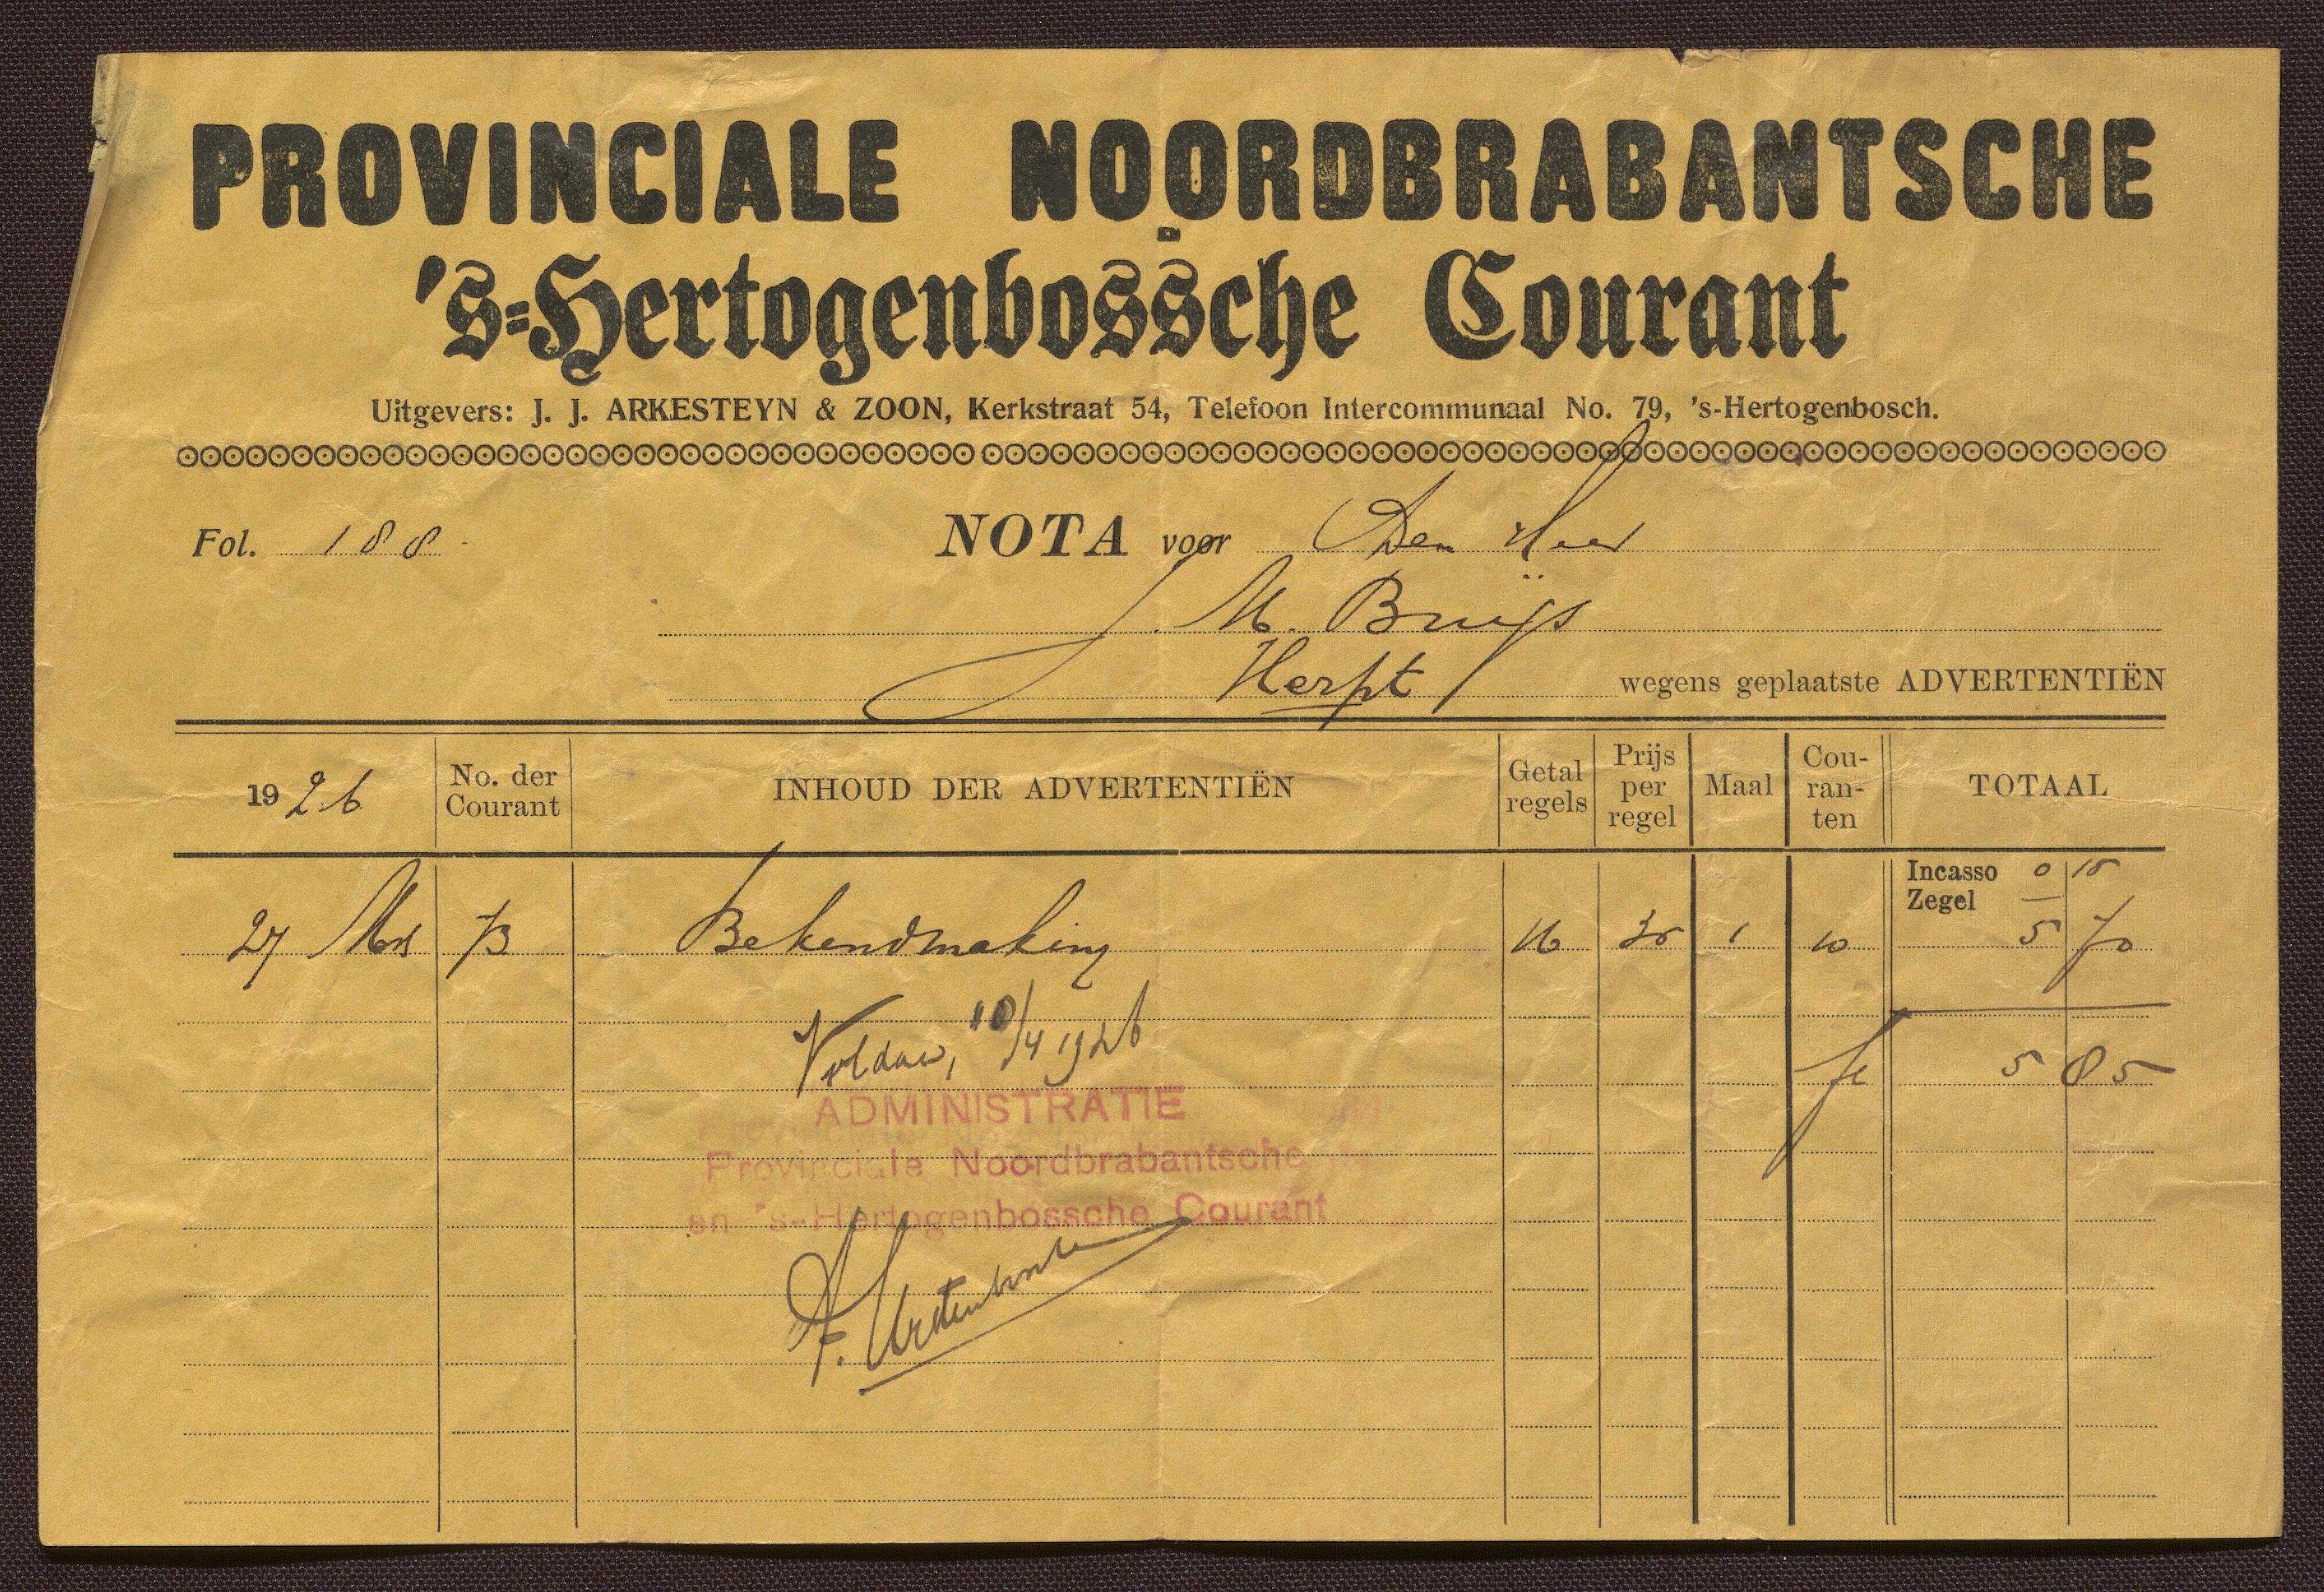 PROVINCIALE NOORDBRABANTSCHE
EN
's-Hertogenbossche Courant
Uitgevers: J. J. ARKESTEYN & ZOON, Kerkstraat 54, Telefoon Intercommunaal No. 79, 's-Hertogenbosch.
Fol. 188 NOTA voor Den Heer
M. Bruijs
Herpt wegens geplaatste ADVERTENTIËN
1926 No. der Courant INHOUD DER ADVERTENTIËN Getal regels Prijs per regel Maal Cou-ran-ten TOTAAL
Incasso 0 15
Zegel —
27 Mrt 73 Bekendmaking 16 35 1 10 5 70
Voldaan, 10/4 1926
fl 5 85
ADMINISTRATIE
Provinciale Noordbrabantsche
en 's-Hertogenbossche Courant